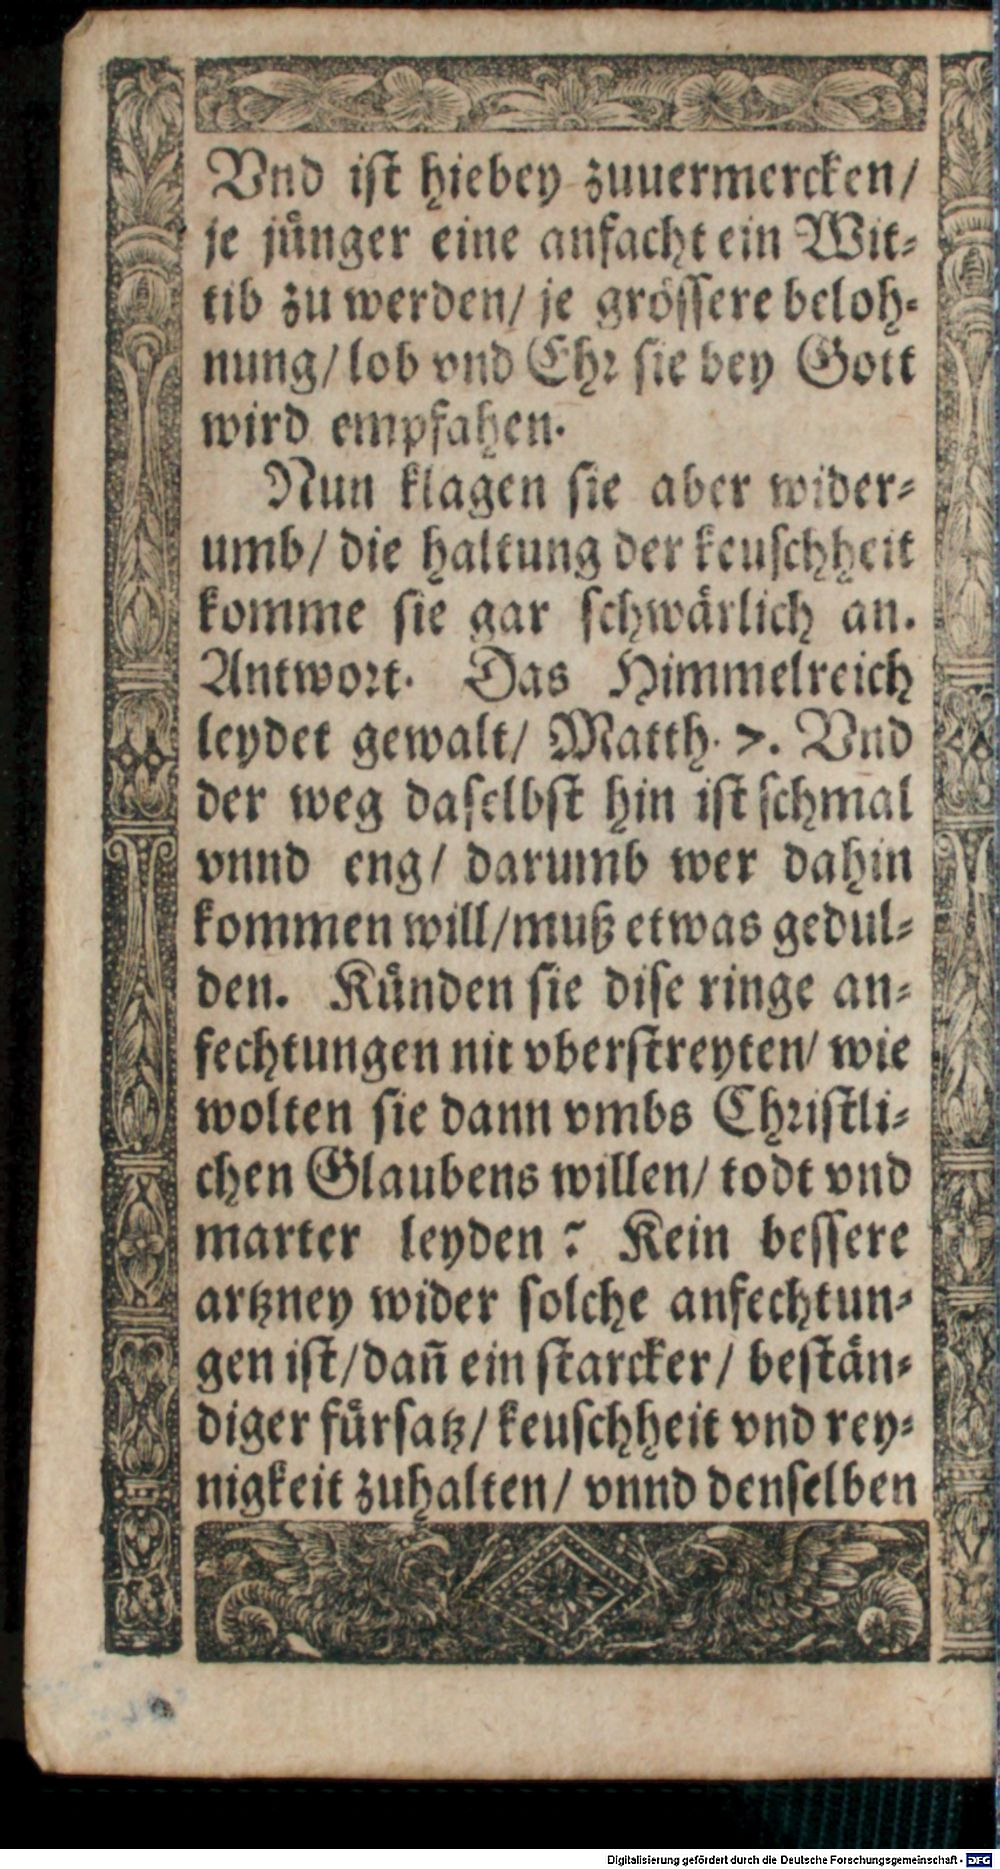 Vnd ist hiebey zuuermercken/
je jünger eine anfacht ein Wit-
tib zu werden/ je grössere beloh-
nung/ lob vnd Ehr sie bey Gott
wird empfahen.
Nun klagen sie aber wider-
umb/ die haltung der keuschheit
komme sie gar schwärlich an.
Antwort. Das Himmelreich
leydet gewalt/ Matth. 7. Vnd
der weg daselbst hin ist schmal
vnnd eng/ darumb wer dahin
kommen will/ muß etwas gedul-
den. Künden sie dise ringe an-
fechtungen nit vberstreyten/ wie
wolten sie dann vmbs Christli-
chen Glaubens willen/ todt vnd
marter leyden? Kein bessere
artzney wider solche anfechtun-
gen ist/ dañ ein starcker/ bestän-
diger fürsatz/ keuschheit vnd rey-
nigkeit zuhalten/ vnnd denselben
Digitalisierung gefördert durch die Deutsche Forschungsgemeinschaft - DFG